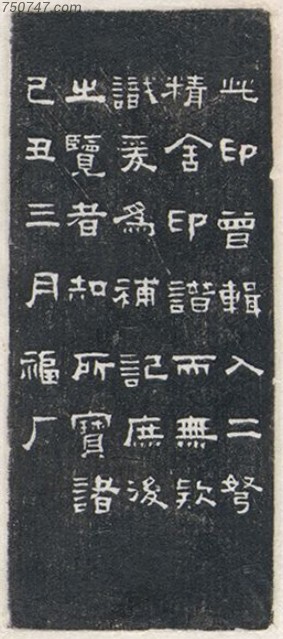 750747.com
此印曾輯入二弩
精舍印譜而無欵
識爰為補記庶後
之覽者知所寶諸
己丑三月福厂